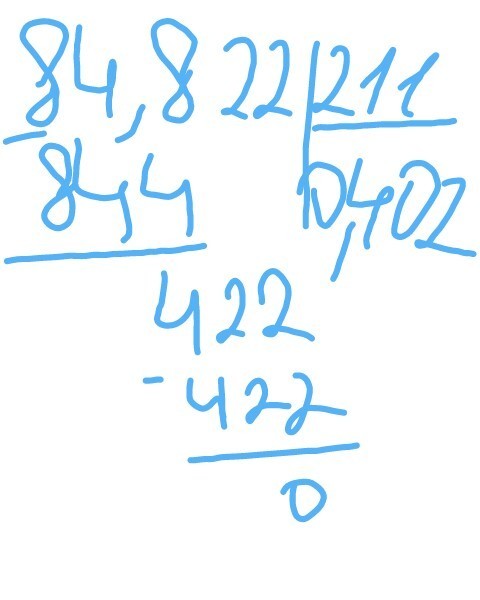 84,822 211
- 84,4 0,402
422
- 422
0